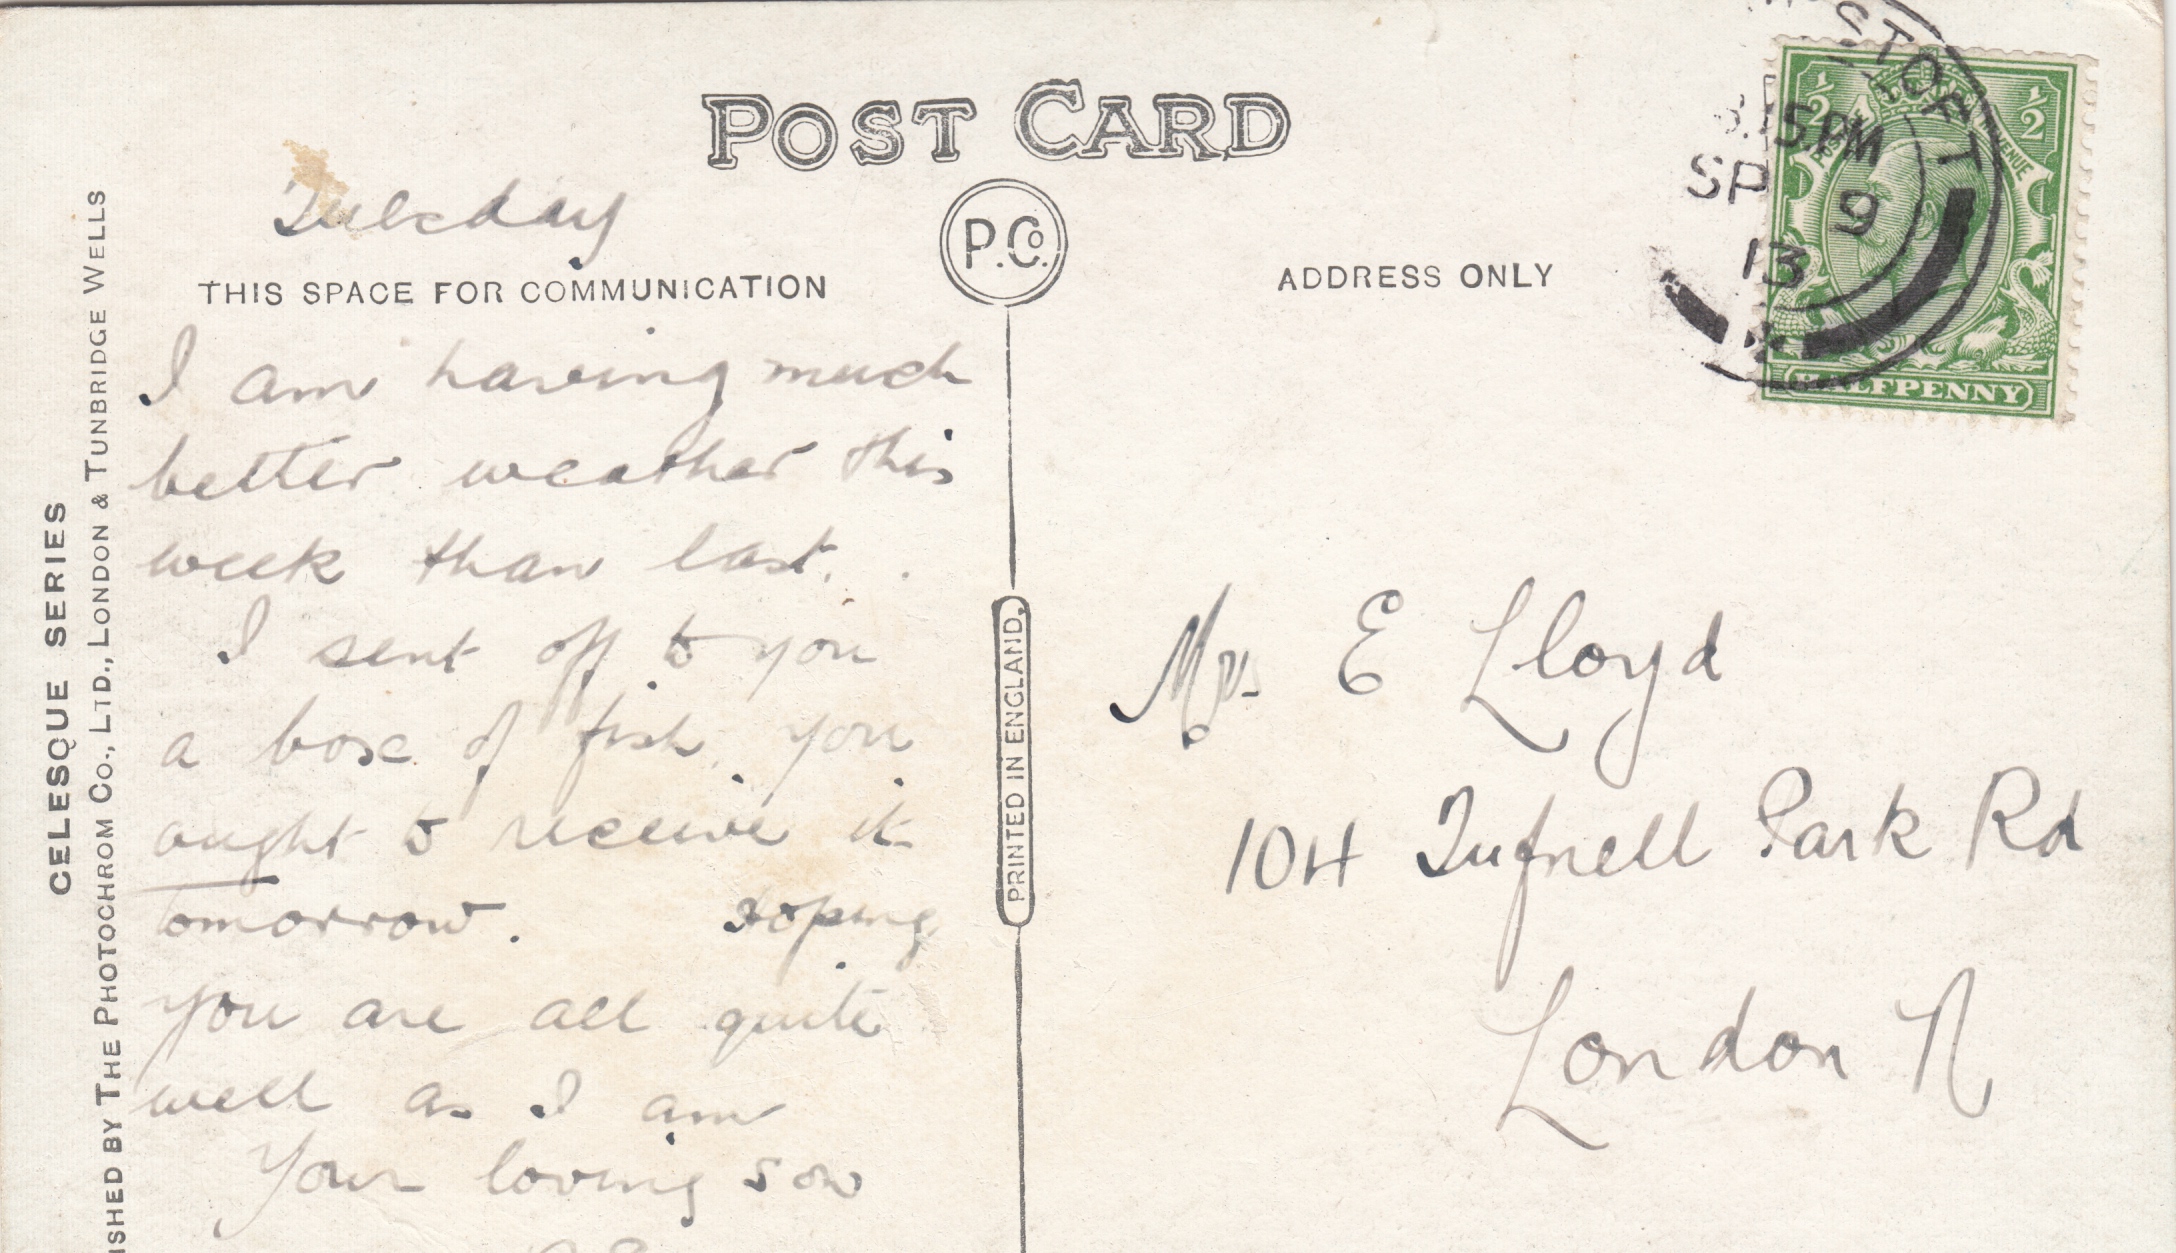 POST CARD
P.Co.
Tuesday
THIS SPACE FOR COMMUNICATION
I am having much
better weather this
week than last.
I sent off to you
a box of fish, you
ought to receive it
tomorrow. Hoping
you are all quite
well as I am
Your loving son
ADDRESS ONLY
Mrs E Lloyd
104 Tufnell Park Rd
London N
CELESQUE SERIES
THE PHOTOCHROM CO., LTD., LONDON & TUNBRIDGE WELLS
PRINTED IN ENGLAND.
15 PM
SP 9
13
½ ½
HALFPENNY